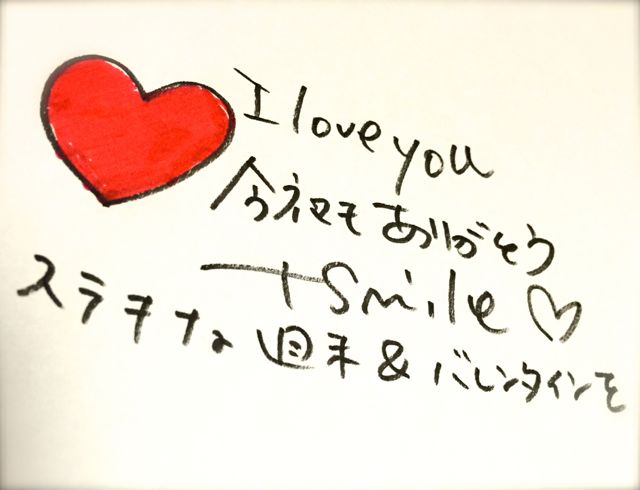 I love you
今夜もありがとう
+Smile♡
ステキな週末&バレンタインを